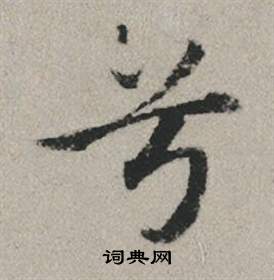 兮
词典网